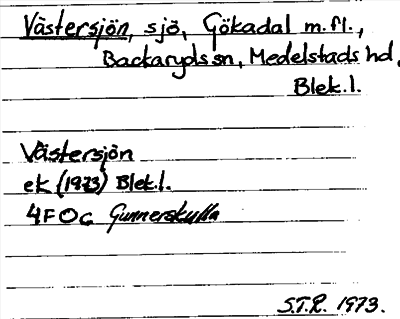 Västersjön, sjö, Gökadal m.fl.,
Backaryds sn, Medelstads hd.
Blek.l.
Västersjön
ek (1973) Blek.l.
4F0c Gunnerskulla
S.T.R. 1973.